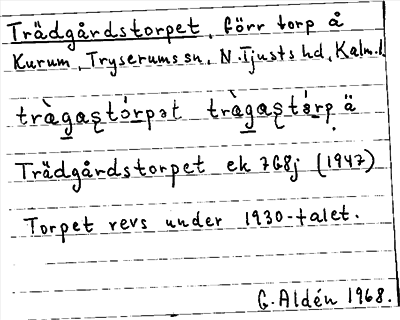 Trädgårdstorpet, förr torp å
Kurum, Tryserums sn, N. Tjusts hd, Kalm.l.
tràgaștó́rpət tràgaștó́rp̣ä
Trädgårdstorpet ek 7G8j (1947)
Torpet revs under 1930-talet.
G. Aldén 1968.